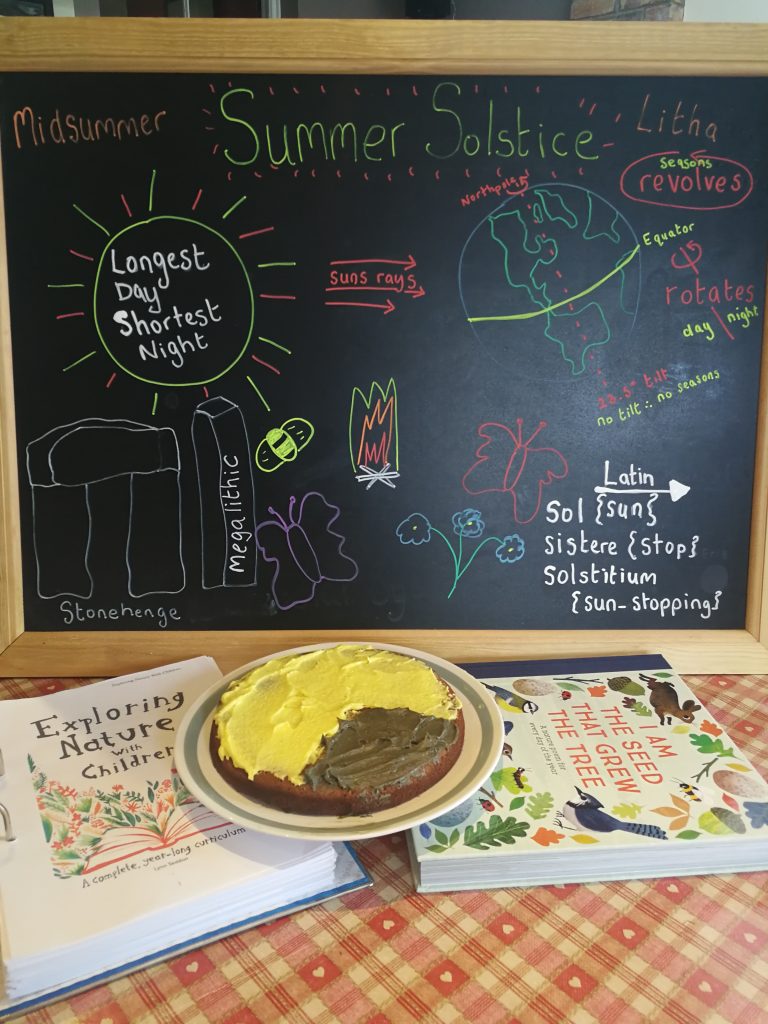 Midsummer
Summer Solstice
Litha
seasons
revolves
Northpole
Equator
rotates
day \ night
23.5° tilt
no tilt ∴ no seasons
suns rays
Longest
Day
Shortest
Night
Megalithic
Stonehenge
Latin
Sol {sun}
Sistere {stop}
Solstitium
{sun-stopping}
Exploring Nature With Children
Exploring
Nature
with
Children
A complete, year-long curriculum
Lynn Seddon
I AM
THE SEED
THAT GREW
THE TREE
A nature poem for
every day of the year